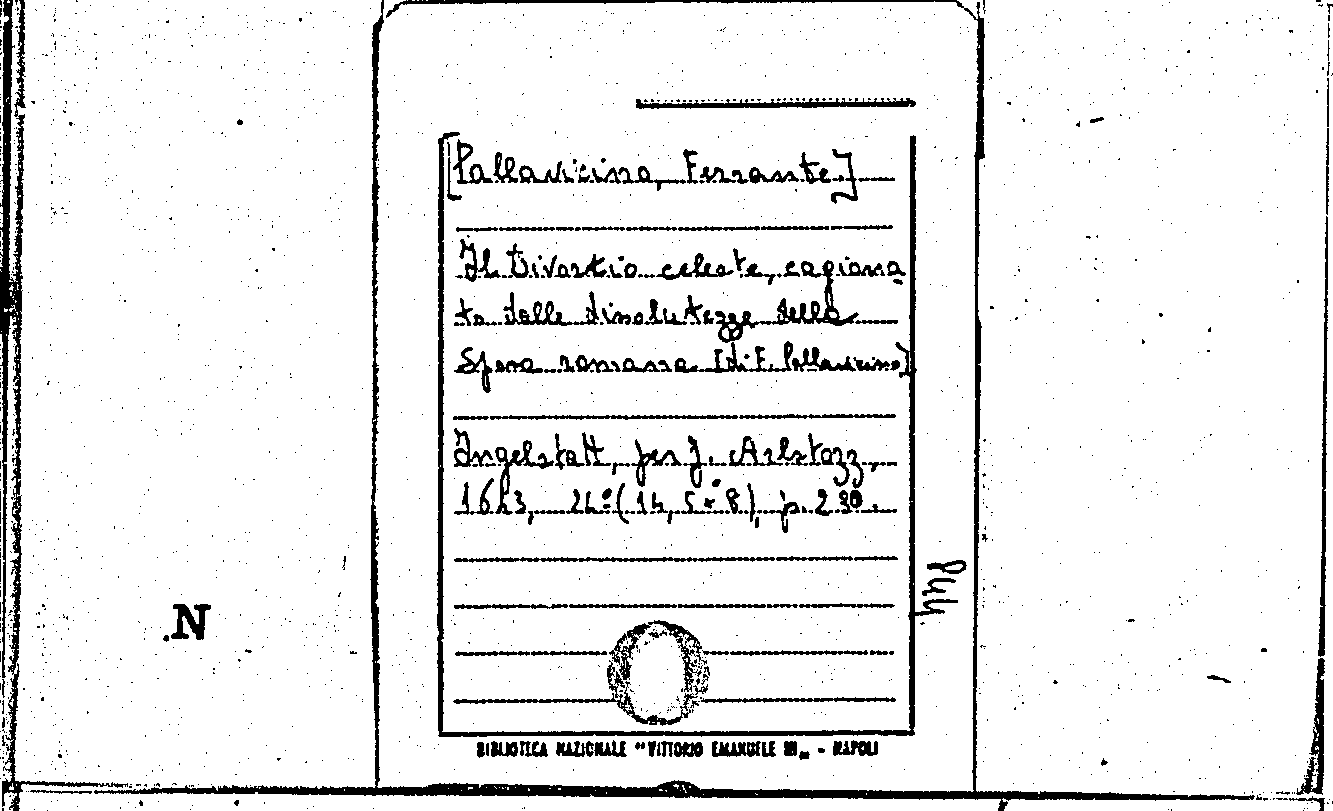 [Pallavicino, Ferrante]
Il Divortio celeste, cagiona
to dalle dissolutezze della
Sposa romana [di F. Pallavicino]
Ingolstatt, per J. Arlstozz,
1643, 24° (14,5 x 8), p. 230.
N
BIBLIOTECA NAZIONALE "VITTORIO EMANUELE III„ - NAPOLI